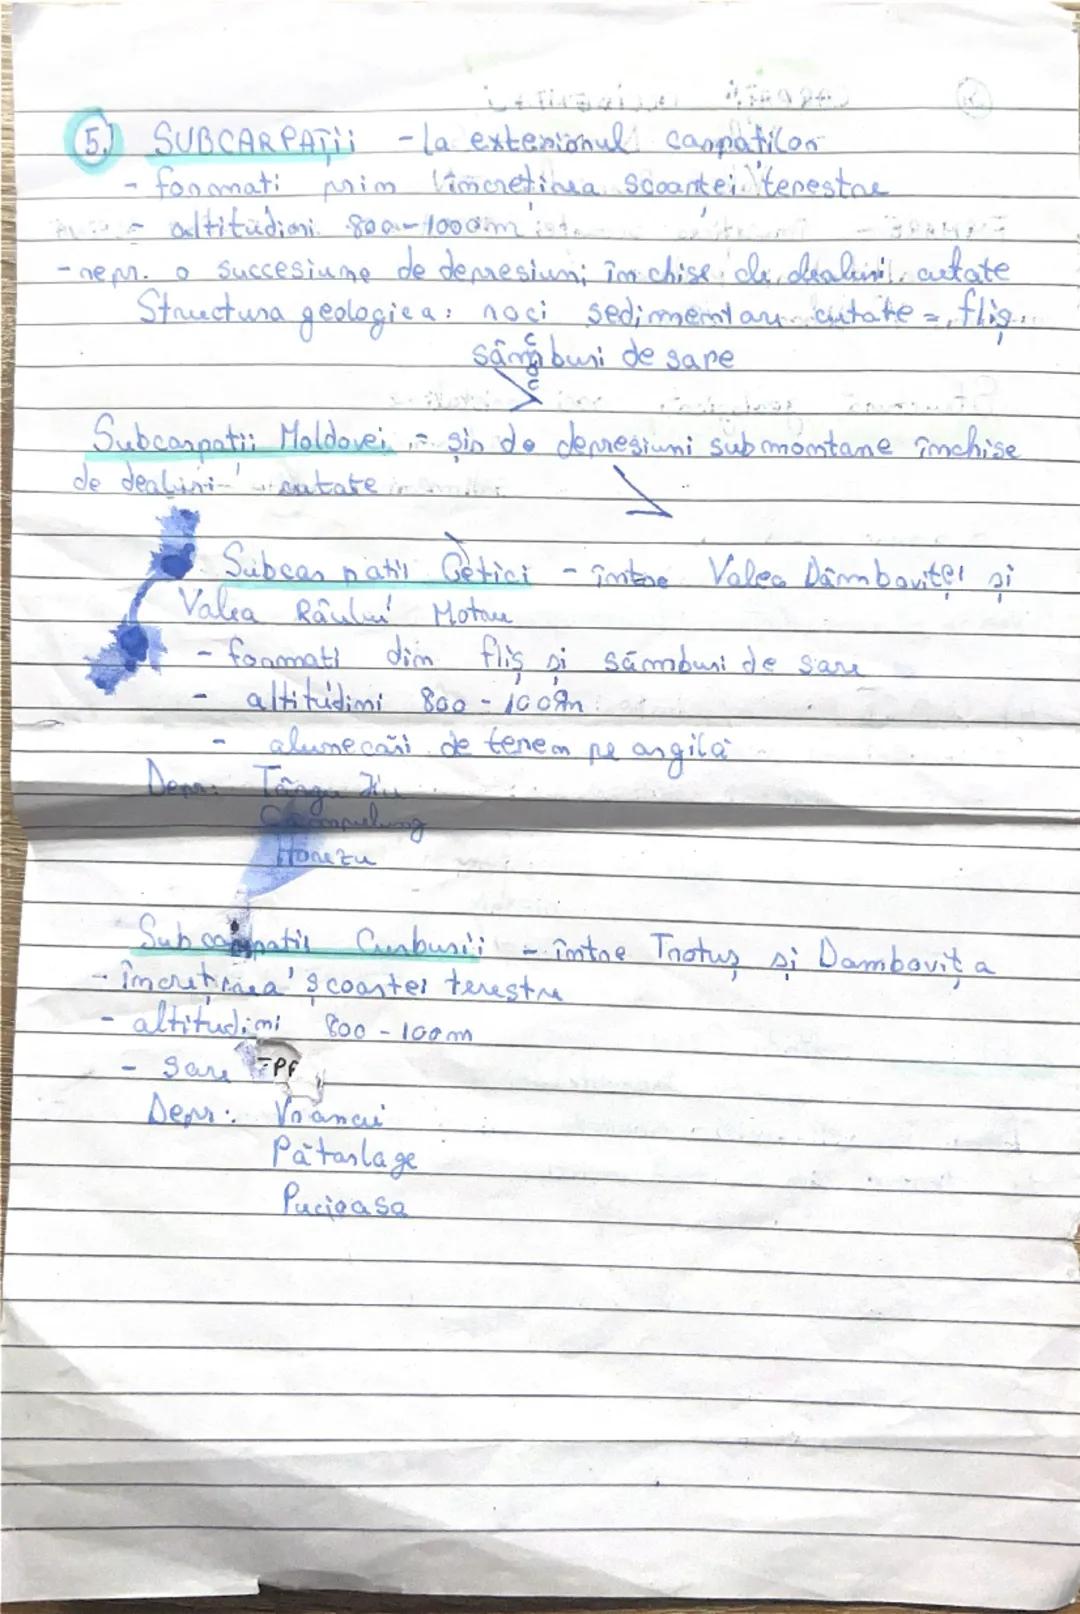 5.) SUBCARPAȚII - la exteriorul carpaților
- formați prin încrețirea scoarței terestre
- altitudini 800-1000m
- repr. o succesiune de depresiuni închise de dealuri cutate
Structura geologica: roci sedimentare cutate = fliș
sâmburi de sare
Subcarpații Moldovei = șir de depresiuni submontane închise
de dealuri cutate
Subcarpatii Getici - între Valea Dâmboviței și
Valea Râului Motru
- formati din fliș și sâmburi de sare
- altitudini 800-100m
- alunecări de teren pe argilă
Depr: Târgu Jiu
Câmpulung
Horezu
Subcarpatii Curburii - între Trotuș și Dambovița
- încrețirea scoarței terestre
- altitudini 800-100m
- sare
Depr: Vrancei
Pătârlage
Pucioasa